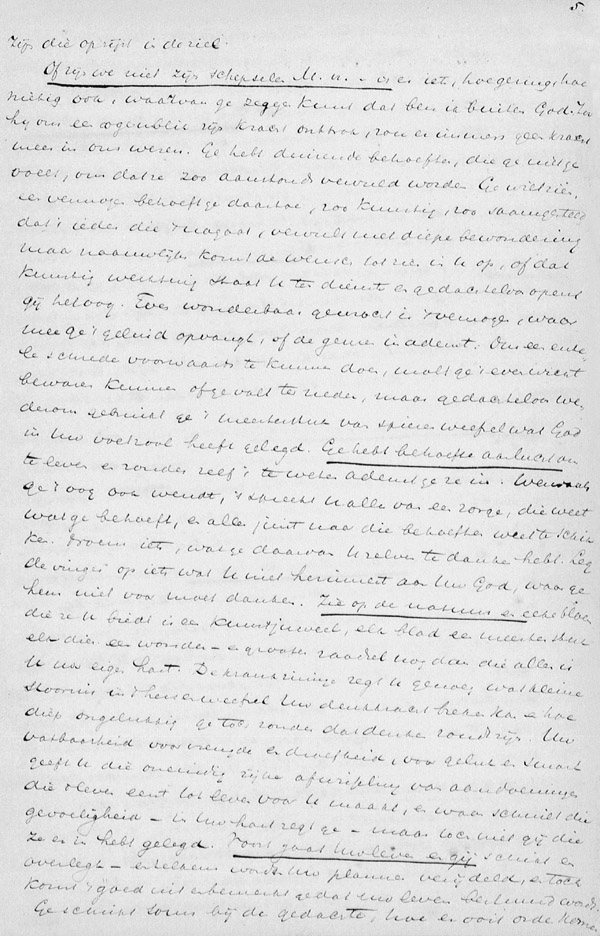 5.
zijn die oprijst in de ziel.
Of zijn we niet zijn schepselen M. h. – is er iets, hoe gering, hoe
nietig ook, waarvan ge zeggen kunt dat ben ik buiten God. Zoo
hij ons een oogenblik zijn kracht onttrok, zou er immers geen kracht
meer in ons wezen. Ge hebt duizende behoeften, die ge niet ge
voelt, omdat ze zoo aanstonds vervuld worden. Ge wilt zien,
een vermogen behoeft ge daartoe, zoo kunstig, zoo saamgesteld
dat 't ieder die 't nagaat, vervult met diepe bewondering
maar nauwelijks komt de wensch tot zien in U op, of dat
kunstig werktuig staat U ten dienst en gedachteloos opent
gij het oog. Even wonderbaar gewrocht is 't vermogen, waar
mee ge 't geluid opvangt, of de geuren inademt. Om een enke
le schrede voorwaarts te kunnen doen, moet ge 't evenwicht
bewaren kunnen of ge valt ter neder, maar gedachteloos we
derom gebruikt ge 't meesterstuk van spierweefsel wat God
in Uw voetzool heeft gelegd. Ge hebt behoefte aan lucht om
te leven en zonder zelf 't te weten ademt ge ze in. Werwaarts
ge 't oog ook wendt, 't spreekt U alles van een zorge, die weet
wat ge behoeft, en alles juist naar die behoeften weet te schik
ken. Noem iets, wat ge daarvan U zelven te danken hebt. Leg
de vinger op iets wat U niet herinnert aan Uw God, waar ge
hem niet voor moet danken. Zie op de natuur en elke bloem
die ze U biedt is een kunstjuweel, elk blad een meesterstuk
elk dier een wonder – en grooter raadsel nog dan die alle is
U uw eigen hart. De krankzinnige zegt U genoeg, wat kleine
stoornis in 't hersenweefsel Uw denkkracht breken kan en hoe
diep ongelukkig ge toch zonder dat denken zoudt zijn. Uw
vatbaarheid voor vreugde en droefheid, voor geluk en smart
geeft U die oneindig rijke afwisseling van aandoeningen
die 't leven eerst tot leven voor U maakt, en waar schuilt die
gevoeligheid – in Uw hart zegt ge – maar toch niet gij die
ze er in hebt gelegd. Voort gaat Uw leven en gij schikt en
overlegt – en telkens worden Uw plannen verijdeld, en toch
komt 't goed uit en bemerkt ge dat Uw leven bestuurd wordt.
Ge schrikt soms bij de gedachte, hoe er ooit orde komen